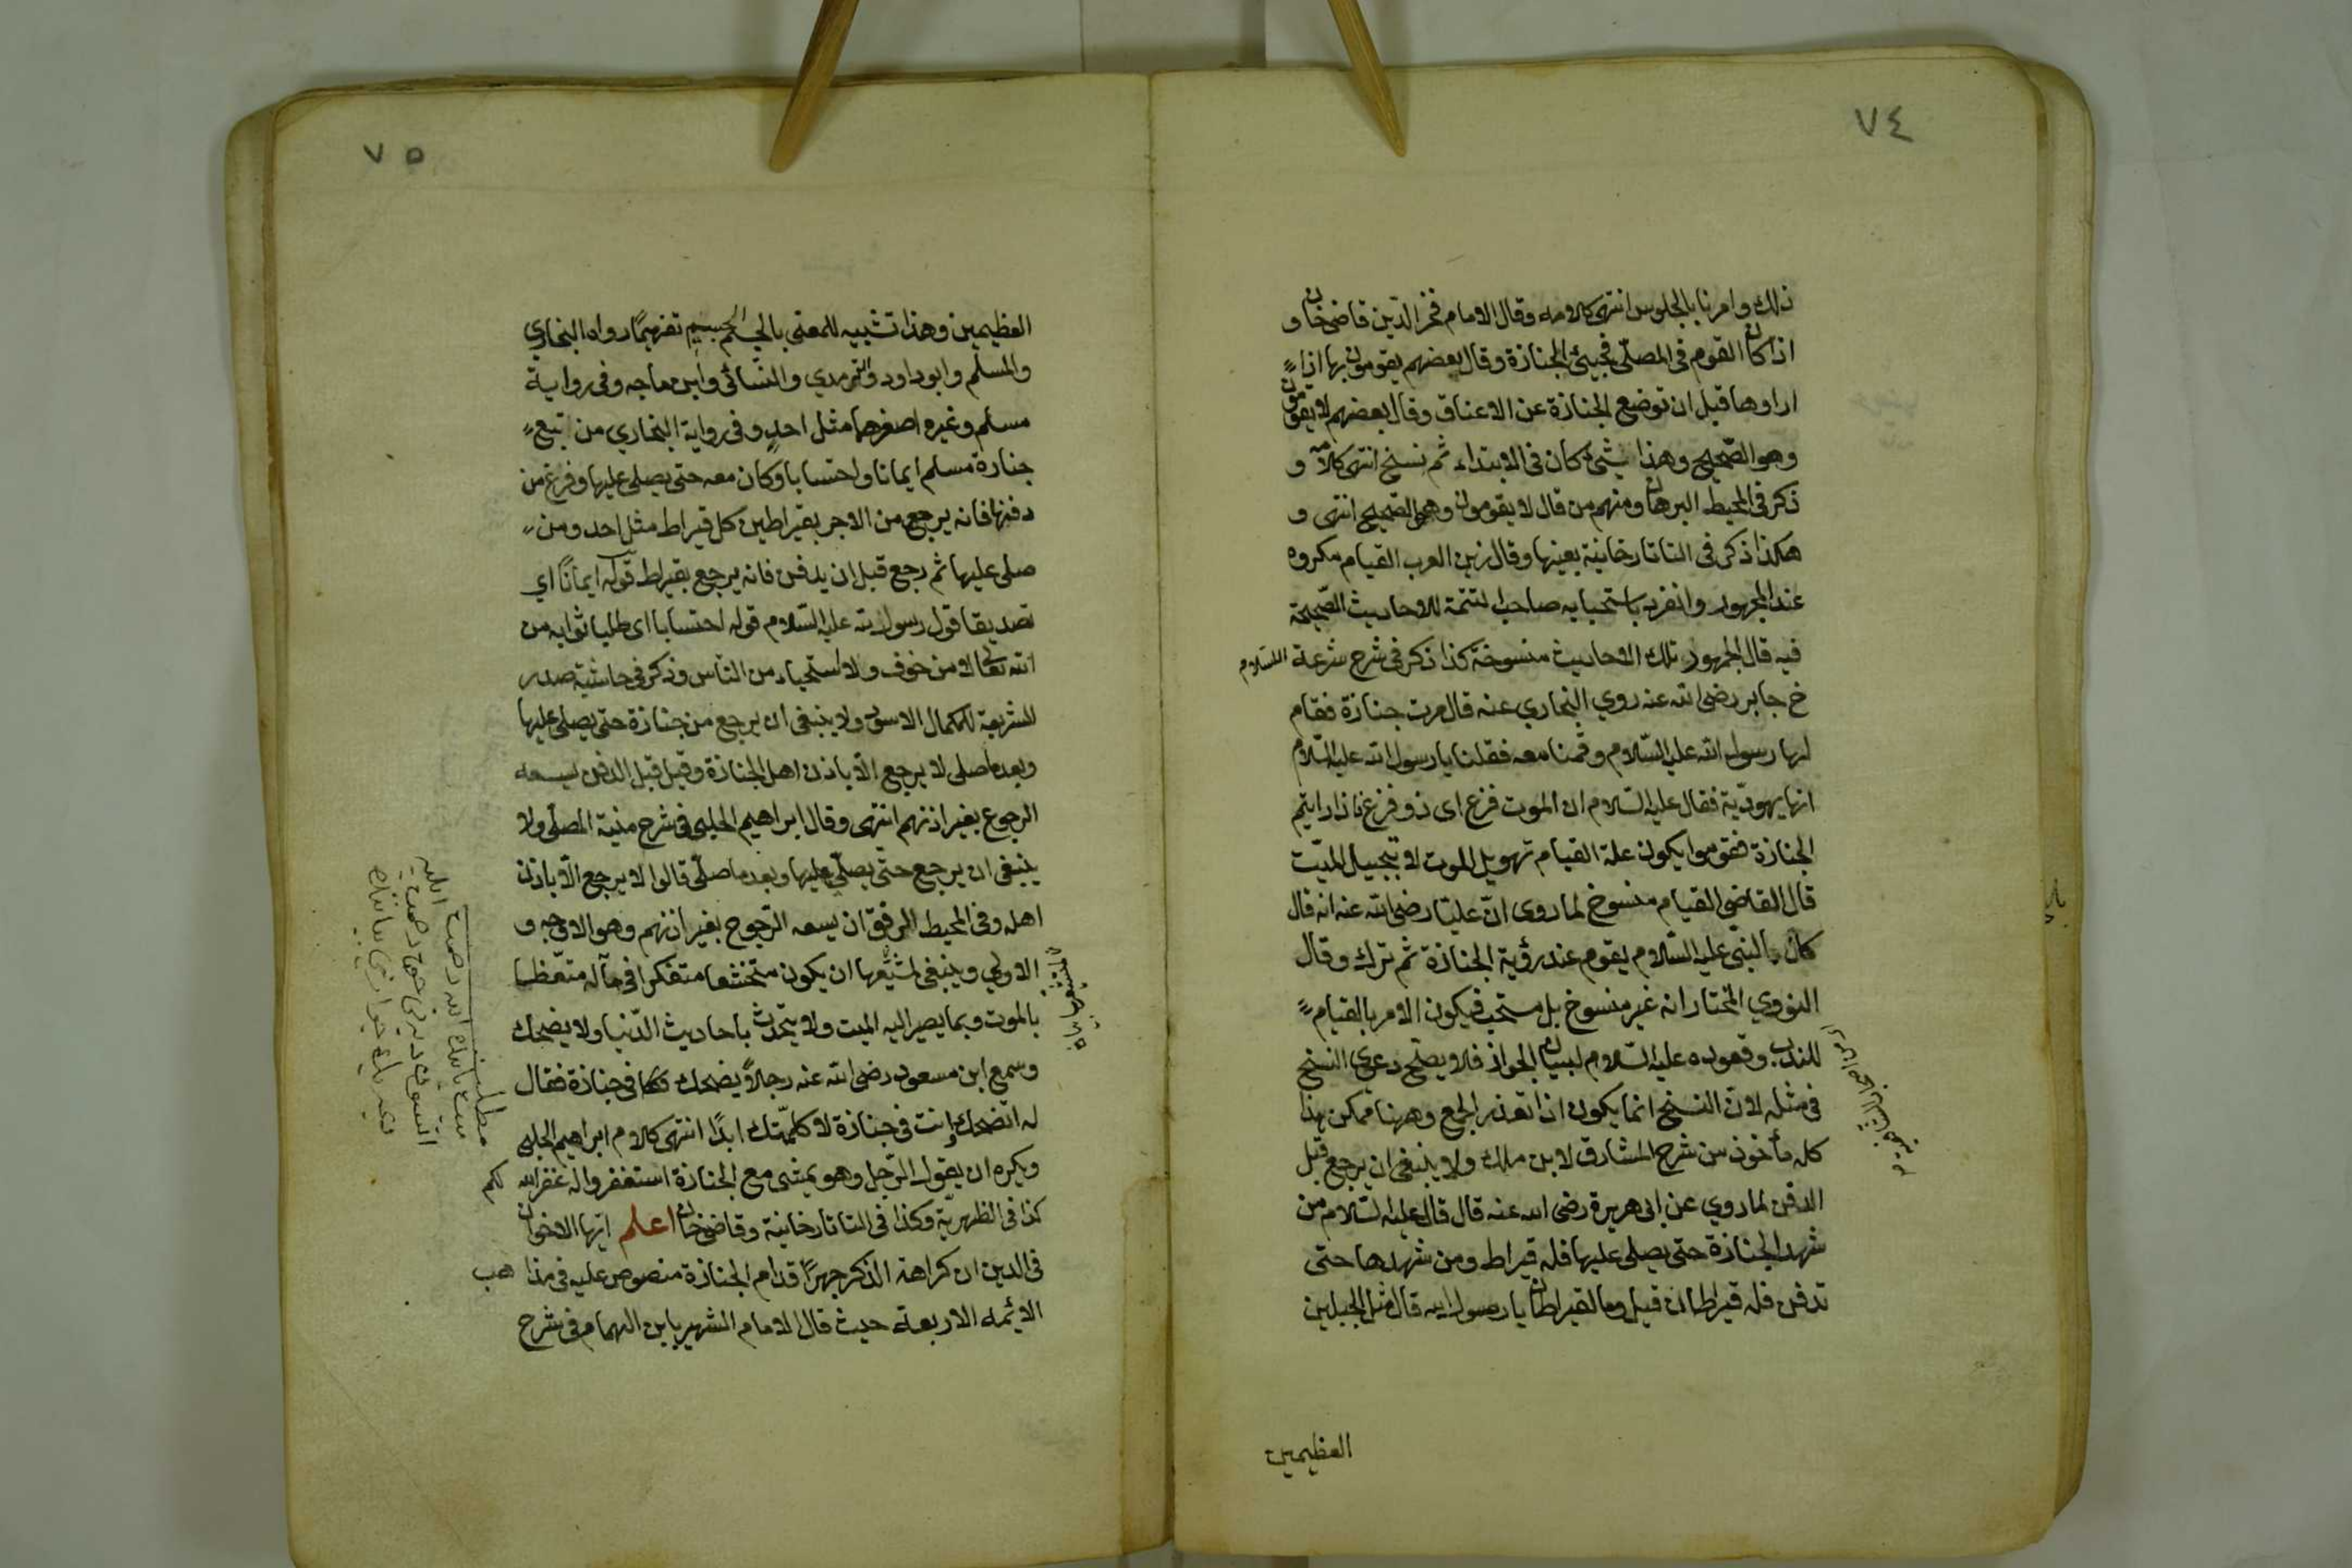 ٧٤
ذلك وامرنا بالجلوس انتهى كلامه وقال الامام فخر الدين قاضي خان و
اذا كان القوم في المصلّى فجيئ الجنازة وقال بعضهم يقومون بها اذا
اراوها قبل ان توضع الجنازة عن الاعناق وقال بعضهم لا يقومون
وهو الصّحيح وهذا شئ كان في الابتداء ثم نسخ انتهى كلامه و
ذكر في المحيط البرهان ومنهم من قال لا يقومون وهو الصّحيح انتهى و
هكذا ذكر في التاتارخانية بعينها وقال زين العرب القيام مكروه
عند الجمهور وانفرد باستحبابه صاحب التتمة للاحاديث الصّحيحة
فيه قال الجمهور تلك الاحاديث منسوخة كذا ذكر في شرح شرعة الاسلام
خ جابر رضي الله عنه روي البخاري عنه قال مرت جنازة فقام
لها رسول الله عليه السّلام وقمنا معه فقلنا يا رسول الله عليه السّلام
انها يهوديّة فقال عليه السّلام ان الموت فزع اى ذو فزع فاذا رايتم
الجنازة فقوموا يكون علة القيام تهويل الموت لا تبجيل الميّت
قال القاضي القيام منسوخ لما روى انّ عليّا رضي الله عنه انه قال
كان النبيّ عليه السّلام يقوم عند رؤية الجنازة ثم ترك وقال
النووي المختار انه غير منسوخ بل مستحب فيكون الامر بالقيام
للندب وقعوده عليه السّلام لبيان الجواز فلا يصحّ دعوى النسخ
في مثله لانّ النسخ انما يكون اذا تعذر الجمع وههنا ممكن هذا
كله مأخوذ من شرح المشارق لابن ملك ولا ينبغي ان يرجع قبل
الدفن لما روي عن ابي هريرة رضي الله عنه قال قال عليه السّلام من
شهد الجنازة حتى يصلى عليها فله قيراط ومن شهدها حتى
تدفن فله قيراطان قيل وما القيراطان يا رسول الله قال مثل الجبلين
العظيمين
٧٥
العظيمين وهذا تشبيه للمعنى بالجسم الجسيم تفهيمًا رواه البخاري
والمسلم وابو داود والترمدي والنسائي وابن ماجه وفي رواية
مسلم وغيره اصغرهما مثل احدٍ وفي رواية البخاري من تبع
جنازة مسلم ايمانا واحتسابا وكان معه حتى يصلى عليها وفرغ من
دفنها فانه يرجع من الاجر بقيراطين كل قيراط مثل احد ومن
صلى عليها ثم رجع قبل ان يدفن فانه يرجع بقيراط قوله ايمانًا اي
تصديقا قول رسول الله عليه السّلام قوله احتسابا اى طلبا ثوابه من
الله تعالى لا من خوف ولا استحياء من النّاس وذكر في حاشية صدر
الشريعة للكمال الاسود ولا ينبغي ان يرجع من جنازة حتى يصلى عليها
وبعد ما صلى لا يرجع الّا باذن اهل الجنازة وقيل قبل الدفن يسعه
الرجوع بغير اذنهم انتهى وقال ابراهيم الحلبي في شرح منية المصلّى ولا
ينبغي ان يرجع حتى يصلّي عليها وبعد ما صلّى قالوا لا يرجع الّا باذن
اهله وفي المحيط الرفق ان يسعه الرّجوع بغير اذنهم وهو الاوجه و
الاولي وينبغي لمشيّعها ان يكون متخشعا متفكرا في مآله متعّظا
بالموت وبما يصير اليه الميت ولا يتحدّث باحاديث الدّنيا ولا يضحك
وسمع ابن مسعود رضي الله عنه رجلاً يضحك في جنازة فقال
له اتضحك وانت في جنازة لا كلمّتك ابدًا انتهى كلام ابراهيم الحلبي
ويكره ان يقول الرّجل وهو يمشي مع الجنازة استغفروا له غفر الله لكم
كذا في الظهريّة وكذا في التاتارخانية وقاضي خان اعلم ايّها الاخوان
في الدين ان كراهة الذكر جهرًا قدام الجنازة منصوص عليه في مذاهب
الائمه الاربعة حيث قال الامام الشهير بابن الهمام في شرح
مطلب